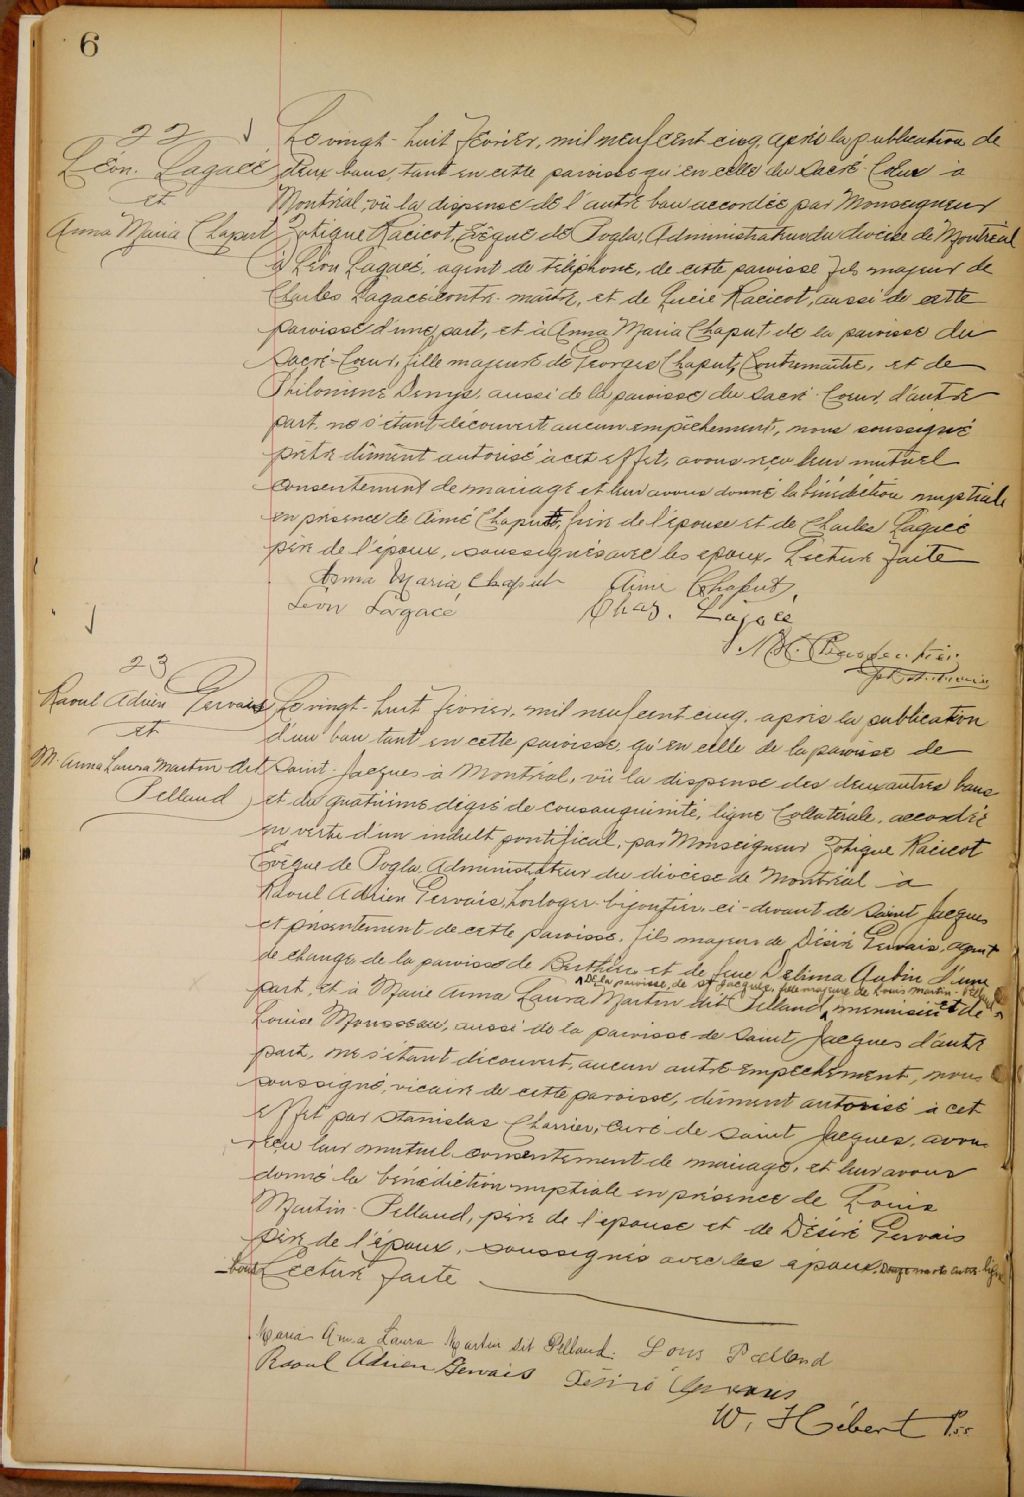 6
22
Léon Lagacé
et
Anna Maria Chaput
Le vingt-huit Février, mil neuf cent cinq, après la publication de
deux bans, tant en cette paroisse qu'en celle du Sacré-Coeur à
Montréal, vû la dispense de l'autre ban accordée par Monseigneur
Zotique Racicot, Evêque de Pogla, Administrateur du diocèse de Montréal
à Léon Lagacé, agent de téléphone, de cette paroisse fils majeur de
Charles Lagacé contre-maître, et de Lucie Racicot, aussi de cette
paroisse d'une part, et à Anna Maria Chaput de la paroisse du
Sacré-Coeur, fille majeure de Georges Chaput, Contremaître, et de
Philomène Denys, aussi de la paroisse du Sacré-Coeur, d'autre
part, ne s'étant découvert aucun empêchement, nous soussigné
prêtre dûment autorisé à cet effet, avons reçu leur mutuel
consentement de mariage et leur avons donné la bénédiction nuptiale
en présence de Aimé Chaput, frère de l'épouse et de Charles Lagacé
père de l'époux, soussignés avec les epoux. Lecture faite
Anna Maria Chaput Aimé Chaput
Léon Lagacé Chas. Lagacé
23
Raoul Adrien Gervais
et
M. Anna Laura Martin dit
Pelland
Le vingt-huit Février, mil neuf cent cinq, après la publication
d'un ban tant en cette paroisse, qu'en celle de la paroisse de
Saint-Jacques à Montréal, vû la dispense des deux autres bans
et du quatrième dégré de consanguinité, ligne Collatérale, accordée
en vertu d'un indult pontifical, par Monseigneur Zotique Racicot
Evêque de Pogla, Administrateur du diocèse de Montréal à
Raoul Adrien Gervais, horloger-bijoutier, ci-devant de Saint Jacques
et présentement de cette paroisse, fils majeur de Désiré Gervais, agent
de change, de la paroisse de Berthier et de feue Délima Aubin d'une
de la paroisse de St Jacques, fille majeure de Louis Martin-Pelland
part, et à Marie Anna Laura Martin dit Pelland, menuisier et de
Louise Mousseau, aussi de la paroisse de Saint Jacques d'autre
part, ne s'étant découvert, aucun autre empêchement, nous
soussigné, vicaire de cette paroisse, dûment autorisé à cet
effet par Stanislas Charrier, curé de Saint Jacques, avons
reçu leur mutuel consentement de mariage, et leur avons
donné la bénédiction nuptiale en présence de Louis
Martin-Pelland, père de l'épouse et de Désiré Gervais
père de l'époux, soussignés avec les époux.
Lecture faite
Maria Anna Laura Martin dit Pelland. Louis Pelland
Raoul Adrien Gervais Désiré Gervais
W. Hébert Pss.